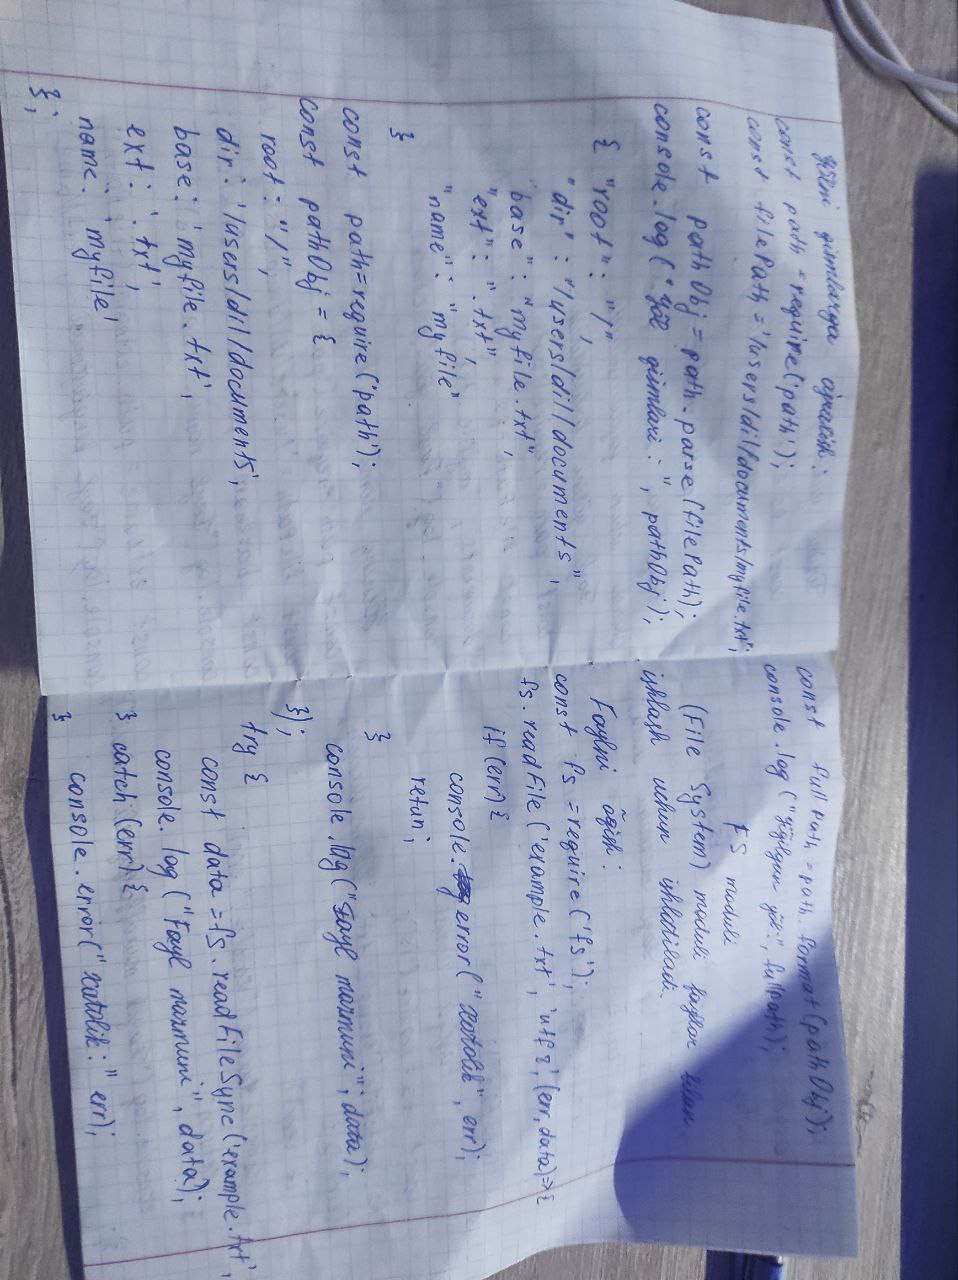 Yo'lni qismlarga ajratish:
const path = require('path');
const filePath = '/users/dil/documents/myfile.txt';
const pathObj = path.parse(filePath);
console.log("Yo'l qismlari:", pathObj);
{ "root": "/",
"dir": "/users/dil/documents",
"base": "myfile.txt",
"ext": ".txt",
"name": "myfile"
}
const path=require('path');
const pathObj = {
root: "/",
dir: '/users/dil/documents',
base: 'myfile.txt',
ext: '.txt',
name: 'myfile'
};
const fullPath = path.format(pathObj);
console.log("yig'ilgan yo'l:", fullPath);
FS moduli
(File System) moduli fayllar bilan
ishlash uchun ishlatiladi.
Faylni o'qish:
const fs = require('fs');
fs.readFile('example.txt', 'utf8', (err, data)=>{
if (err) {
console.error("xatolik", err);
retun;
}
console.log("Fayl mazmuni", data);
});
try {
const data = fs.readFileSync('example.txt',
console.log("Fayl mazmuni", data);
} catch (err) {
console.error("xatolik:" err);
}